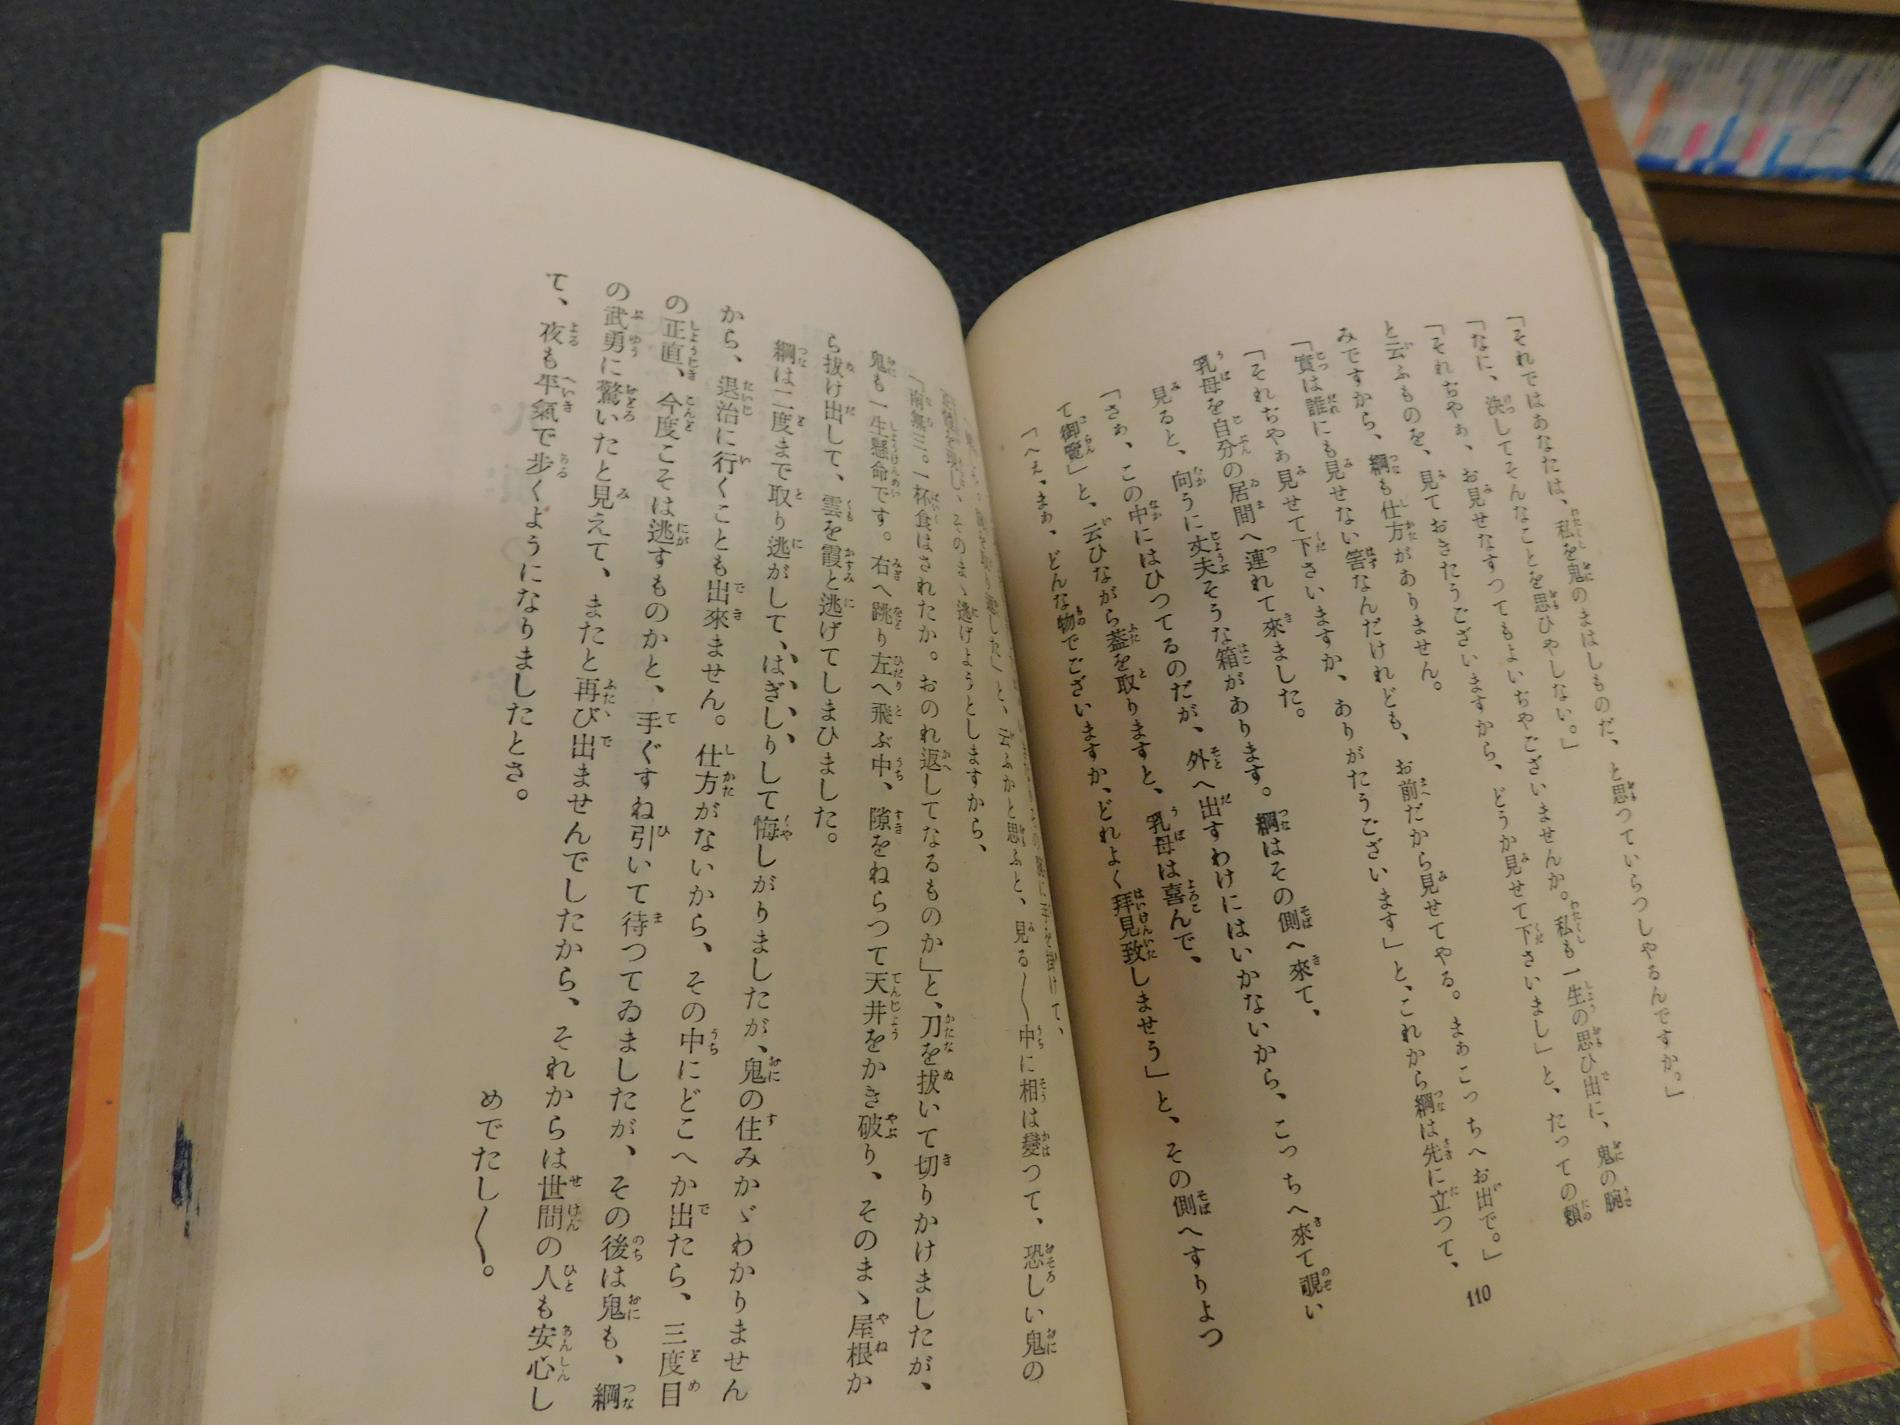 「それではあなたは、私を鬼のまはしものだ、と思つていらつしやるんですか。」
「なに、決してそんなことを思ひやしない。」
「それぢやぁ、お見せなすつてもよいぢやございませんか。私も一生の思ひ出に、鬼の腕
と云ふものを、見ておきたうございますから、どうか見せて下さいまし」と、たつての頼
みですから、綱も仕方がありません。
「實は誰にも見せない筈なんだけれども、お前だから見せてやる。まぁこつちへお出で。」
「それぢやぁ見せて下さいますか、ありがたうございます」と、これから綱は先に立つて、
乳母を自分の居間へ連れて來ました。
見ると、向うに丈夫そうな箱があります。綱はその側へ來て、
「さぁ、この中にはひつてるのだが、外へ出すわけにはいかないから、こつちへ來て覗い
て御覽」と、云ひながら蓋を取りますと、乳母は喜んで、
「へぇ、まぁ、どんな物でございますか、どれよく拜見致しませう」と、その側へすりよつ
に手を掛けて、
と、云ふかと思ふと、見る〱中に相は變つて、恐しい鬼の
し、そのまゝ逃げようとしますから、
「南無三。一杯食はされたか。おのれ返してなるものか」と、刀を拔いて切りかけましたが、
鬼も一生懸命です。右へ跳り左へ飛ぶ中、隙をねらつて天井をかき破り、そのまゝ屋根か
ら拔け出して、雲を霞と逃げてしまひました。
綱は二度まで取り逃がして、はぎしりして悔しがりましたが、鬼の住みかゞわかりません
から、退治に行くことも出來ません。仕方がないから、その中にどこへか出たら、三度目
の正直、今度こそは逃すものかと、手ぐすね引いて待つてゐましたが、その後は鬼も、綱
の武勇に驚いたと見えて、またと再び出ませんでしたから、それからは世間の人も安心し
て、夜も平氣で步くようになりましたとさ。
めでたし〱。
110